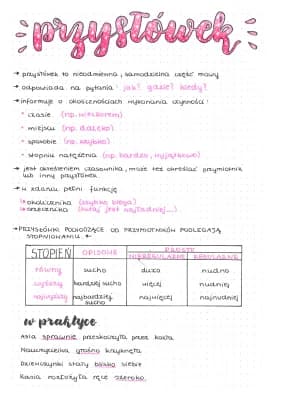 przysłówek
→ przysłówek to nieodmienna, samodzielna część mowy
→ odpowiada na pytania: jak? gdzie? kiedy?
→ informuje o okolicznościach wykonania czynności:
• czasie (np. wieczorem)
• miejscu (np. daleko)
• sposobie (np. szybko)
• stopniu natężenia (np. bardzo, wyjątkowo)
→ jest określeniem czasownika, może też określać przymiotnik
lub inny przysłówek
→ w zdaniu pełni funkcję
↳ okolicznika (szybko biega)
↳ orzecznika (tutaj jest najładniej...)
→ PRZYSŁÓWKI POCHODZĄCE OD PRZYMIOTNIKÓW PODLEGAJĄ
STOPNIOWANIU ←
STOPIEŃ OPISOWE PROSTE
NIEREGULARNE REGULARNE
równy sucho dużo nudno
wyższy bardziej sucho więcej nudniej
najwyższy najbardziej sucho najwięcej najnudniej
w praktyce
Asia sprawnie przeskoczyła przez kozła
Nauczycielka głośno krzyknęła
Dziewczynki stały blisko siebie
Kasia rozłożyła ręce szeroko.